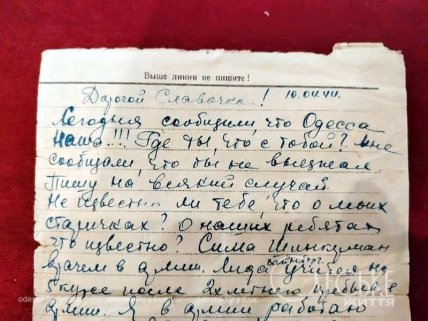 Выше линии не пишите!
Дорогой Славочка! 10.04.44.
Сегодня сообщили, что Одесса
наша!!! Где ты, что с тобой? Мне
сообщали, что ты не выезжал.
Пишу на всякий случай.
Не известно ли тебе, что о моих
старичках? О наших ребятах
что известно? Сима
врачем в армии. Лида учится на
курсе после 2х летнего пребыв. в
армии. Я в армии работаю
ЖИТТЯ